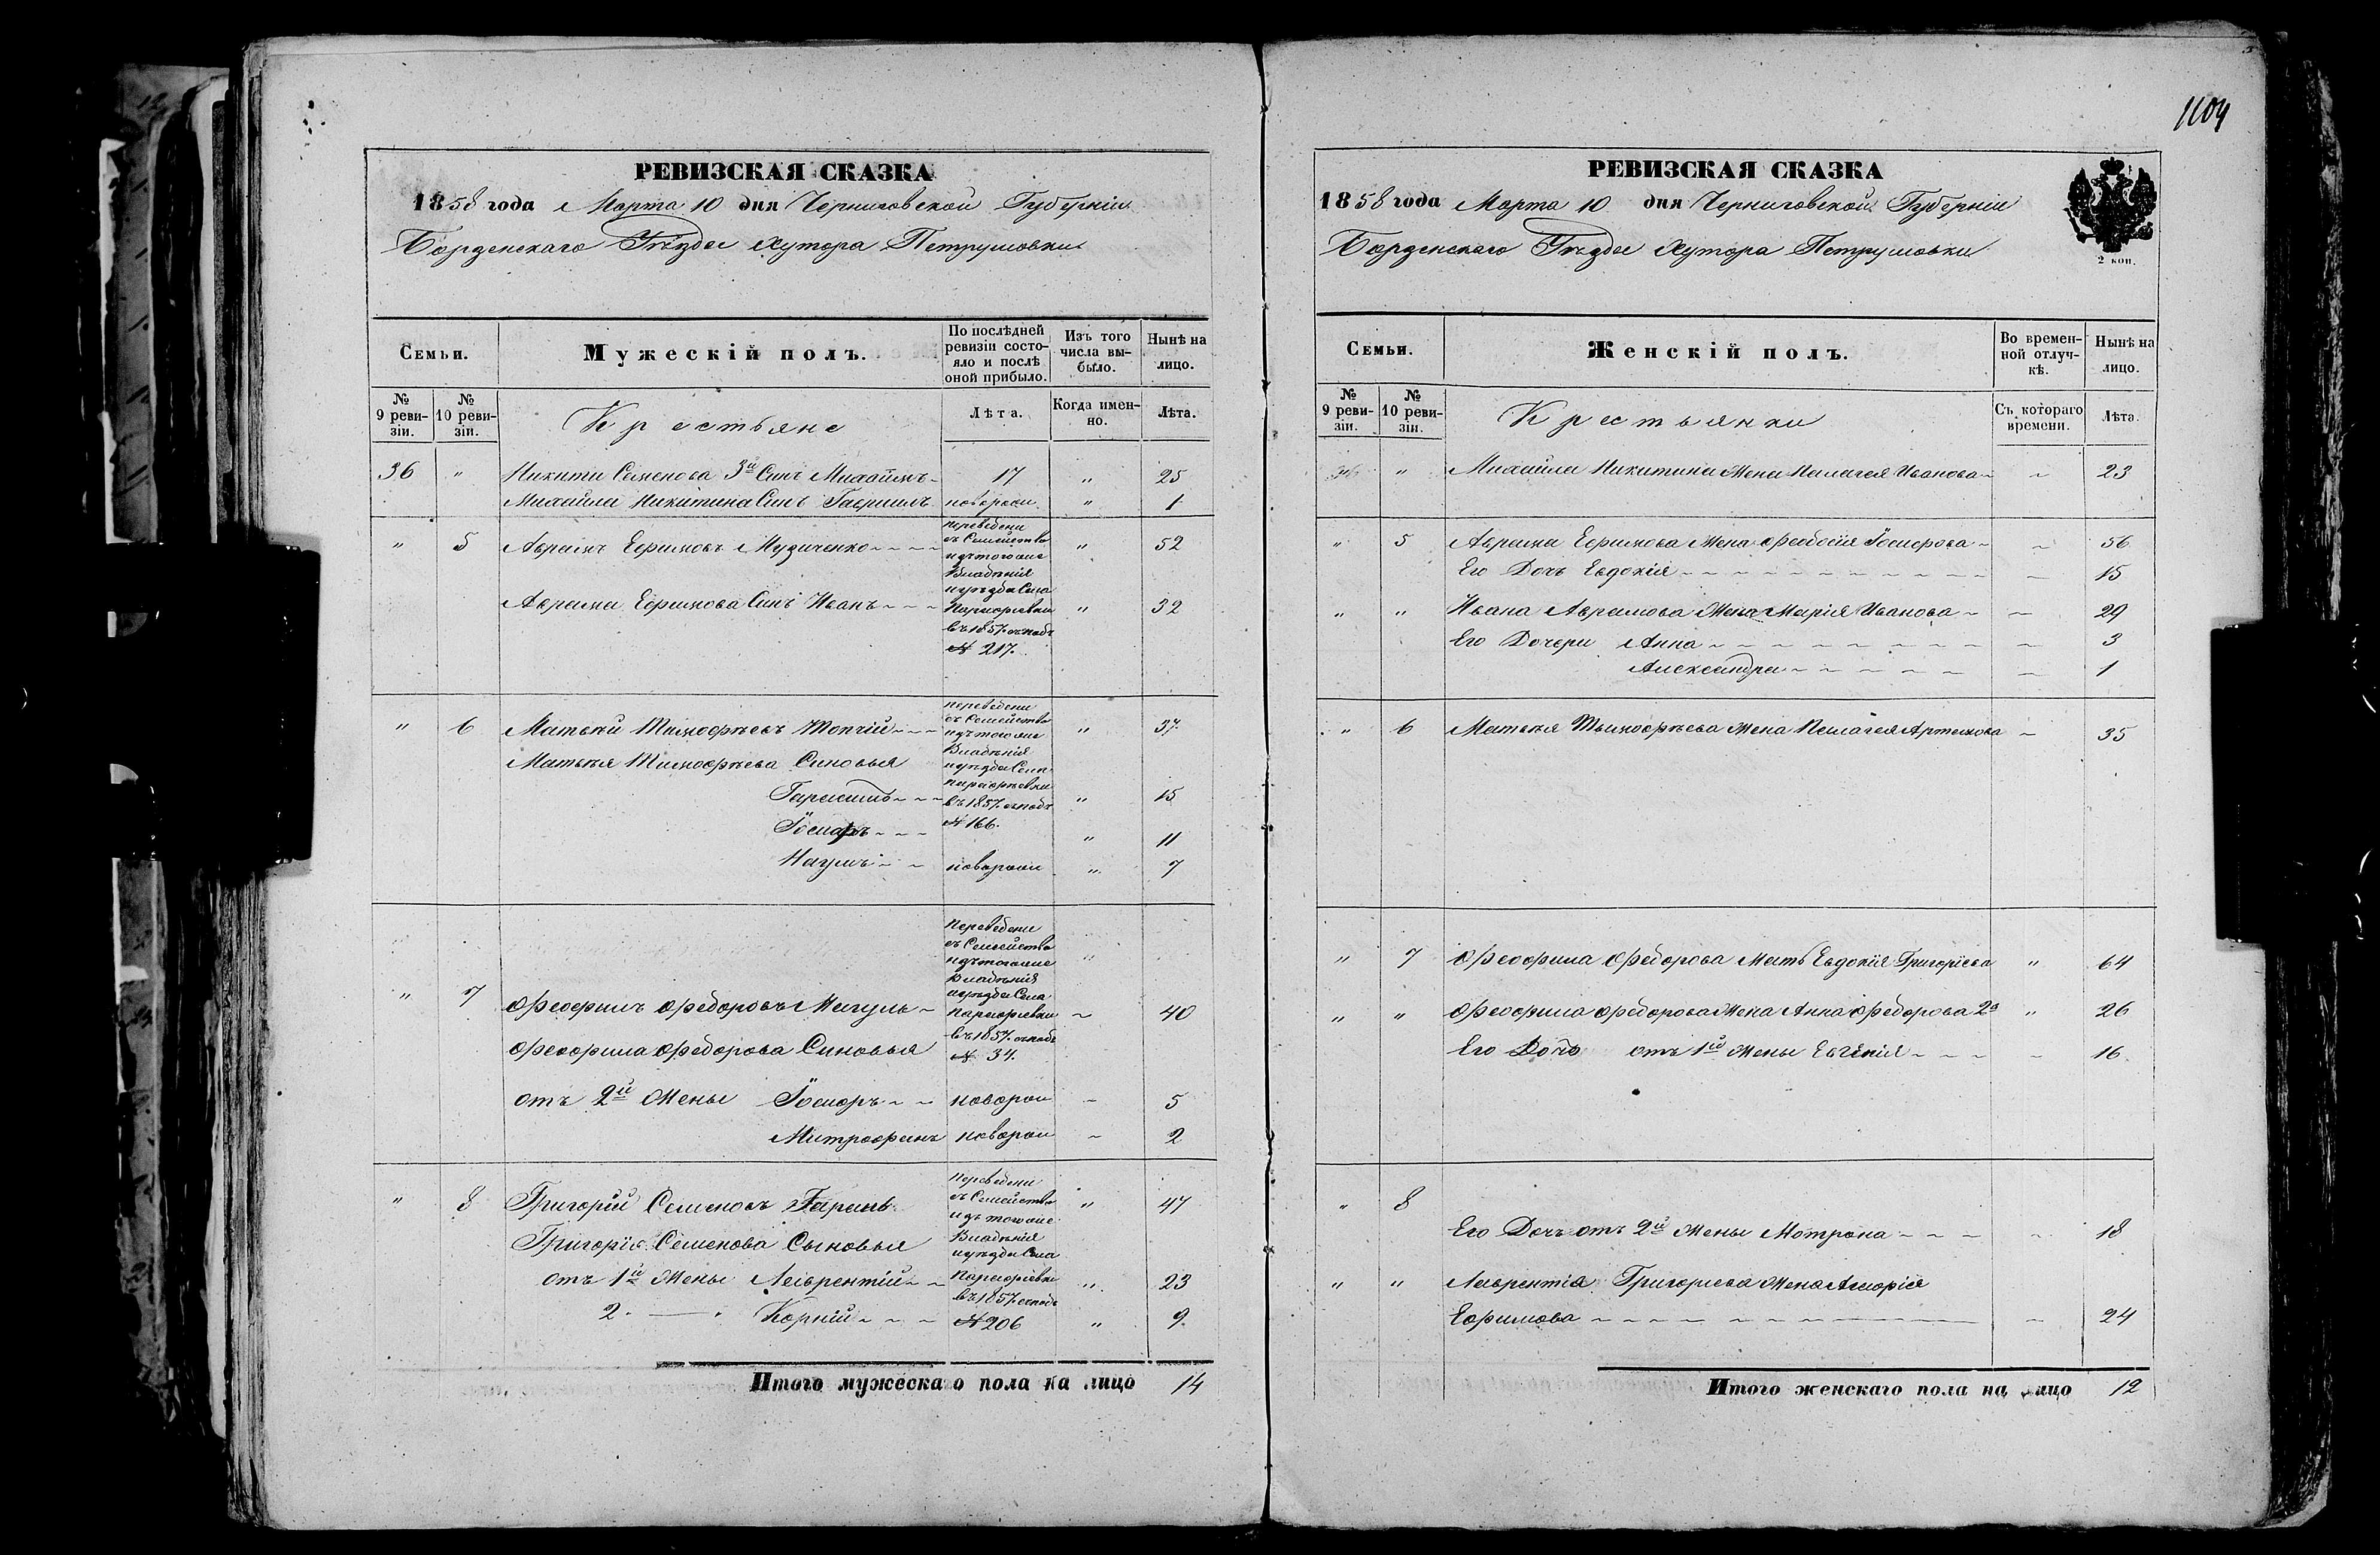 РЕВИЗСКАЯ СКАЗКА
1858 года Марта 10 дня Черниговской Губерніи
Борзенскаго Уѣзда Хутора Петрушовки
Семьи.
Мужескій полъ.
По послѣдней ревизіи состояло и послѣ оной прибыло.
Изъ того числа выбыло.
Нынѣ на лицо.
№ 9 ревизіи.
№ 10 ревизіи.
Крестьяне
Лѣта.
Когда именно.
Лѣта.
36 " Никиты Семенова 3й Сынъ Михайлъ 17 " 25
Михайла Никитина Сынъ Гавриилъ новорож " 1
" 5 Аврамъ Ефимовъ " 52
Аврама Ефимова Сынъ Иванъ " 32
переведены
съ Семейства
изъ того же
Владѣнія
уѣзда Села
въ 1857. отподъ
№ 217.
" 6 Матвѣй Тимофѣевъ Топчій " 37
Матвѣя Тимофѣева Синовья
Гарасимъ " 15
Іосифъ " 11
Наумъ новорож " 7
переведены
съ Семейства
изъ того же
Владѣнія
уѣзда Села
въ 1857. отподъ
№ 166.
" 7 Феофилъ Федоровъ 40
Феофила Федорова Синовья
отъ 2й Жены Іосифъ новорож 5
Митрофанъ новорож 2
Переведены
съ Семейства
изъ того же
Владѣнія
уѣзда Села
въ 1857. отподъ
№ 34.
" 8 Григорій Семеновъ " 47
Григорія Семенова Сыновья
отъ 1й Жены Лаврентій " 23
2. — " Корнiй " 9
Переведены
съ Семейства
изъ того же
Владѣнія
уѣзда Села
въ 1857. отподъ
№ 206
Итого мужескаго пола на лицо 14
1104
РЕВИЗСКАЯ СКАЗКА
1858 года Марта 10 дня Черниговской Губерніи
Борзенскаго Уѣзда Хутора Петрушовки
2 коп.
Семьи.
Женскій полъ.
Во временной отлучкѣ.
Нынѣ на лицо.
№ 9 ревизіи.
№ 10 ревизіи.
Крестьянки
Съ котораго времени.
Лѣта.
36 " Михайла Никитина Жена Палагея Иванова 23
" 5 Аврама Ефимова Жена Феодосія Іосифова 56
Его Дочь Евдокія 15
" " Ивана Аврамова Жена Марія Иванова 29
Его Дочери Анна 3
Александра 1
" 6 Матвѣя Тимофѣева Жена Пелагея Артемова 35
" 7 Феофила Федорова Мать Евдокія Григоріева " 64
" " Феофила Федорова Жена Анна Федорова 2я " 26
Его Дочь отъ 1й Жены Евгенія 16
" 8
Его Дочь отъ 2й Жены Мотрона 18
" " Лаврентія Григоріева Жена
Ефимова 24
Итого женскаго пола на лицо 12